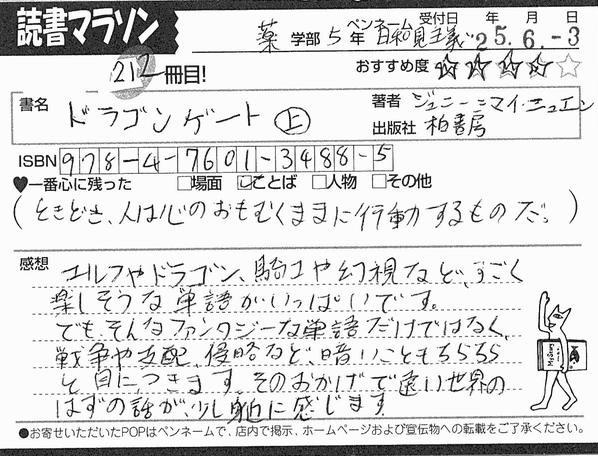 読書マラソン
薬 学部 5 年 ペンネーム 日和見主義 受付日 年 月 日 25.6.-3
212 冊目! おすすめ度 ★★★★☆
書名 ドラゴンゲート 上 著者 ジェニー=マイ・ニュエン
出版社 柏書房
ISBN 978-4-7601-3488-5
♥一番心に残った □場面 ☑ことば □人物 □その他
(ときどき、人は心のおもむくままに行動するものだ。)
感想 エルフやドラゴン、騎士や幻視など、すごく
楽しそうな単語がいっぱいです。
でも、そんなファンタジーな単語だけではなく、
戦争や支配、侵略など、暗いこともちらちら
と目につきます。そのおかげで遠い世界の
はずの話が、少し身近に感じます
●お寄せいただいたPOPはペンネームで、店内で掲示、ホームページおよび宣伝物への転載をご了承ください。